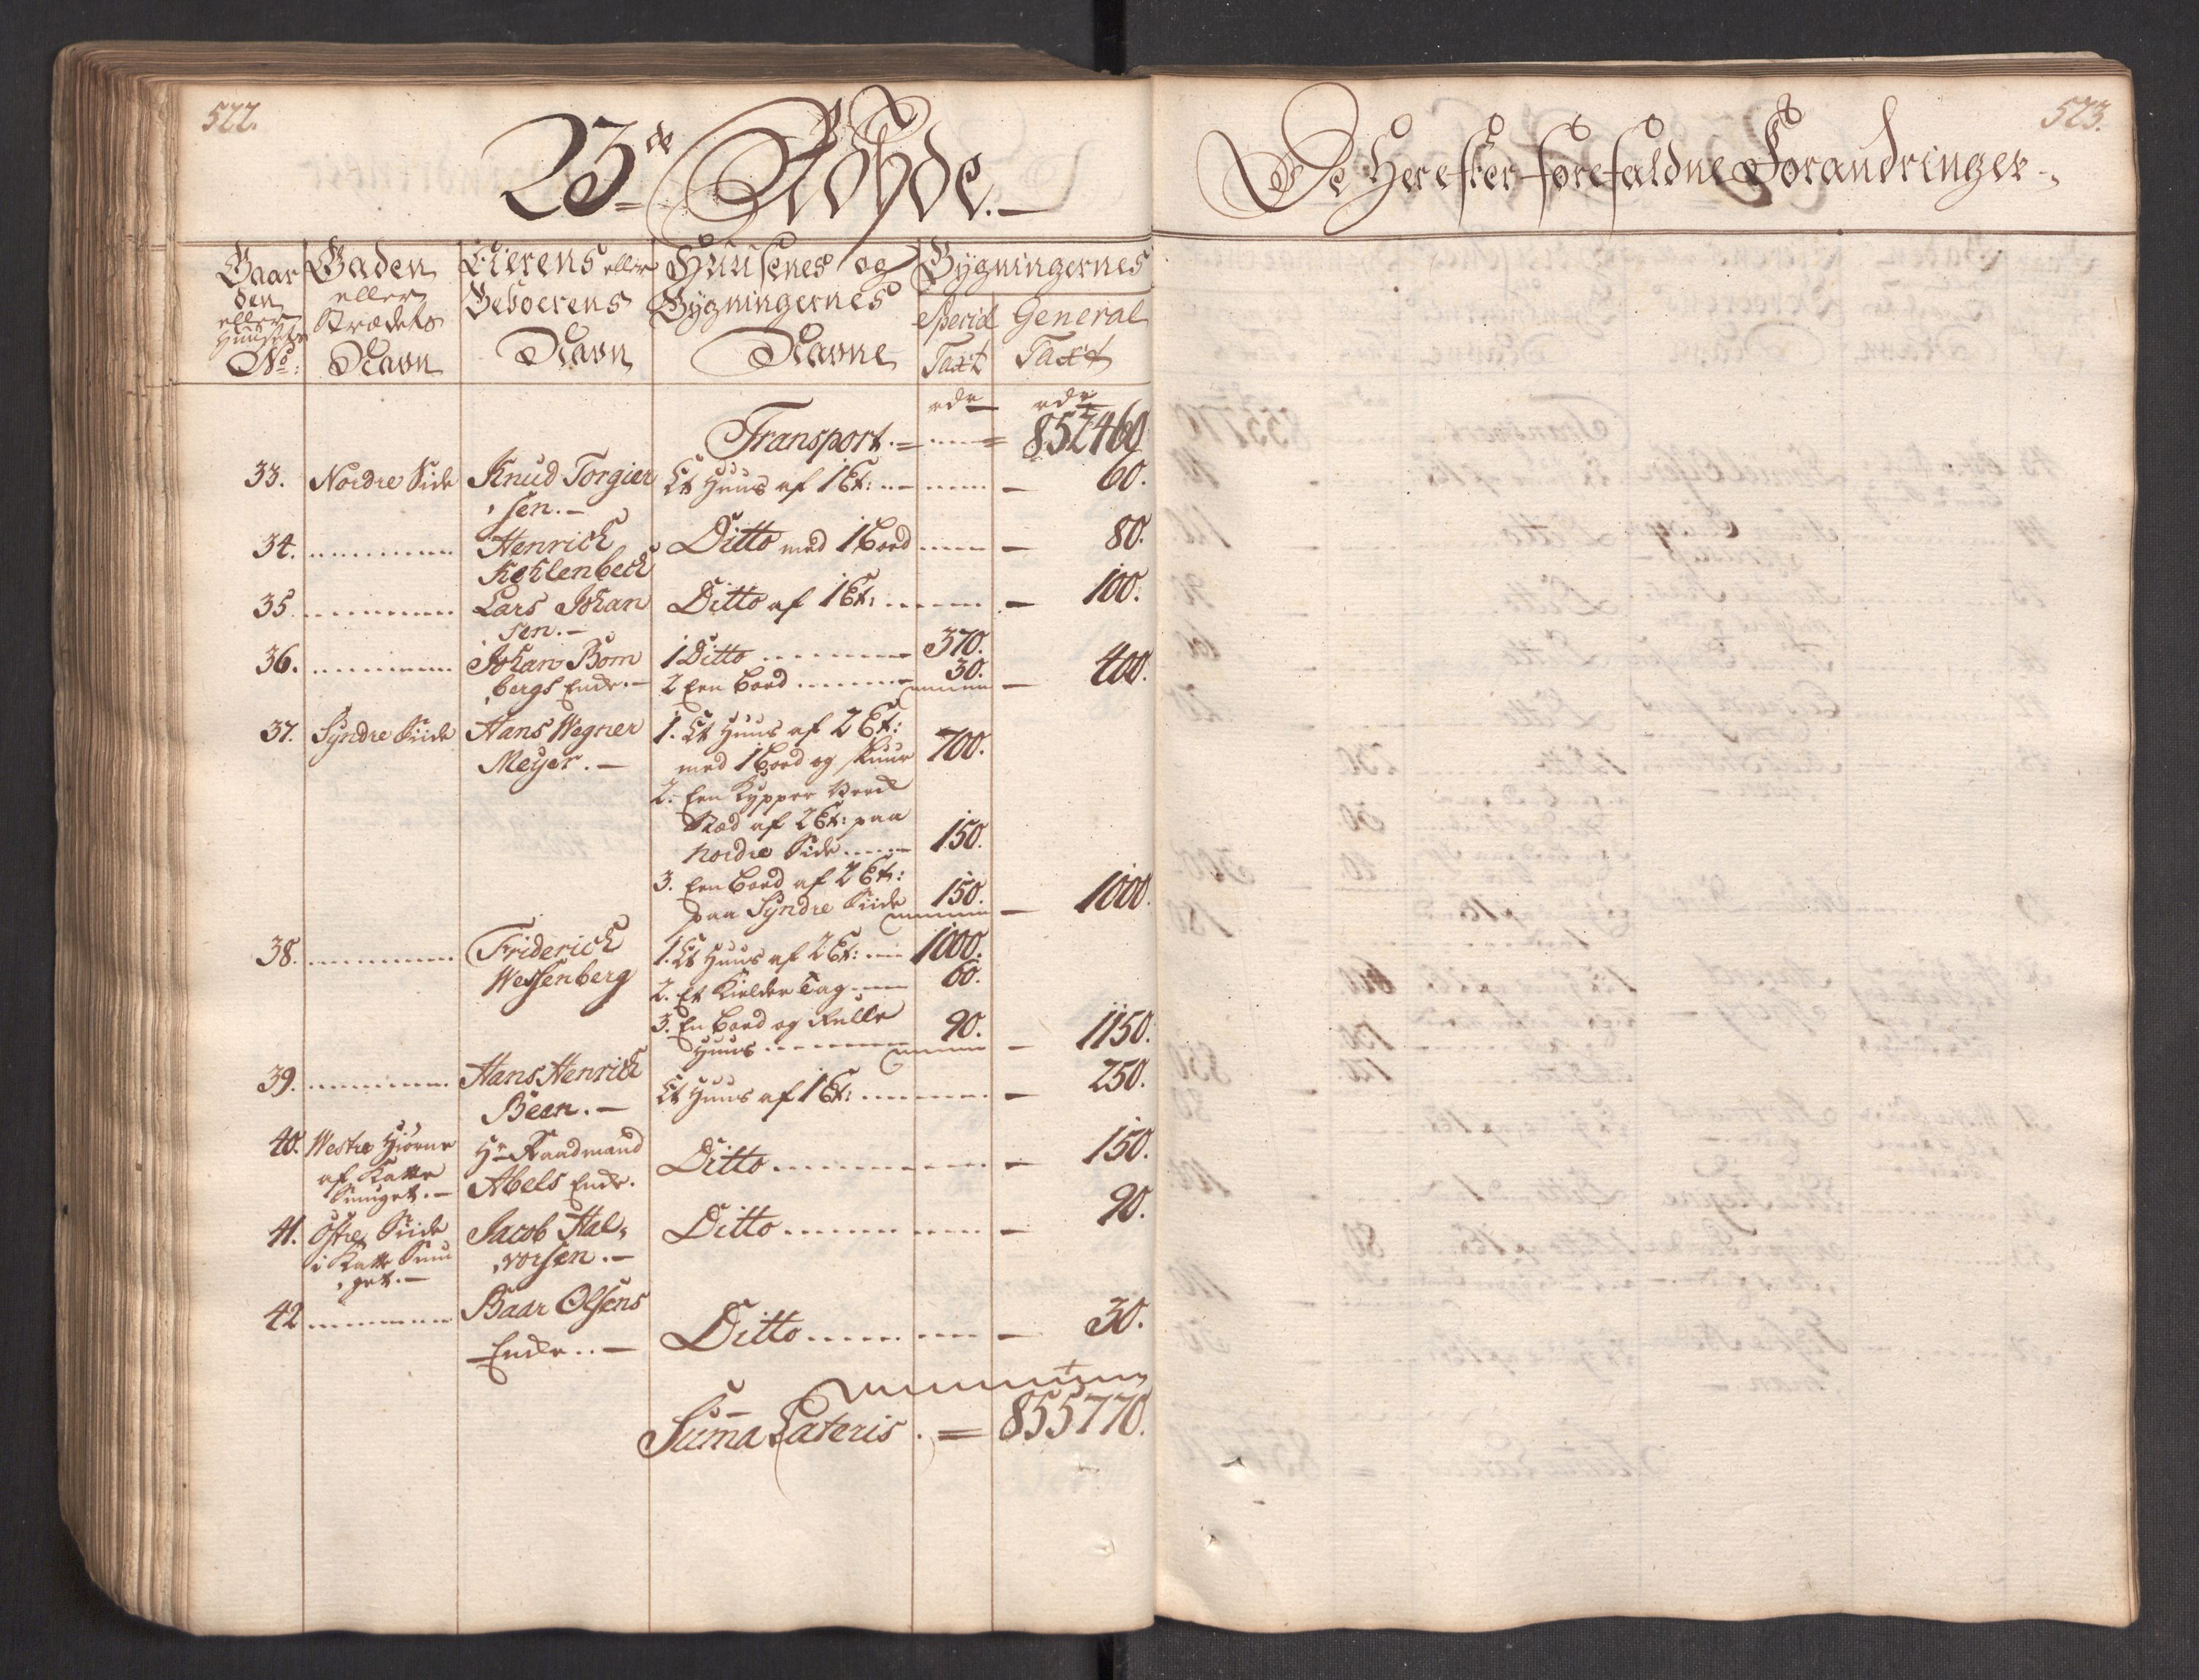 522.
23de Rohde.
Gaarden eller Huusets No:
Gaden eller Strædets Navn
Eierens eller Beboerens Navn
Huusenes og Bygningernes Navne
Bygningernes
Special Taxt
General Taxt
rdr rdr
Transport. 852460
33. Nordre Side Knud Torgier Et Huus af 1 Et: 60.
sen.
34. Henrich Ditto med 1 Boed 80.
Kohlenbeck
35. Lars Johan Ditto af 1 Et: 100.
sen.
36. Johan Bom 1 Ditto 370.
bergs Enke. 2 Een Boed 30. 400.
37. Syndre Siide Hans Wegner 1. Et Huus af 2 Et:
Meyer. med 1 Boed og Skuur 700.
2. Een Kypper
Stæd af 2 Et: paa
Nordre Side 150.
3. Een Boed af 2 Et:
paa Syndre Siide 150. 1000.
38. Friderich 1. Et Huus af 2 Et: 1000.
Wessenberg 2. Et Kielder Tag 60.
3. En Boed og Rulle
Huus 90. 1150.
39. Hans Henrich Et Huus af 1 Et: 250.
Been.
40. Westre Hiørne Hr Raadmand Ditto 150.
af Katte Abels Enke.
Smuget.
41. Østre Siide Jacob Hal, Ditto 90.
i Katte Smu vorsen.
get.
42 Baar Olsens Ditto 30.
Enke.
Suma Lateris. = 855770.
523.
De Herefter forefaldne Forandringer